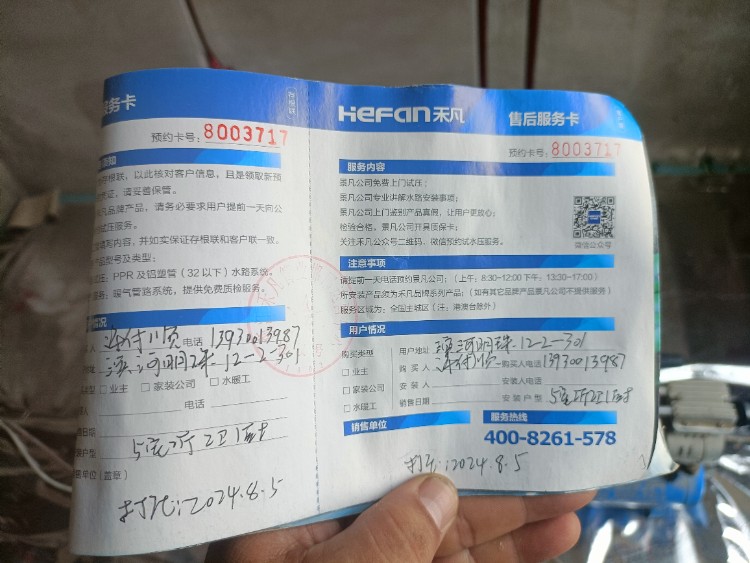 服务卡
预约卡号: 8003717
存根联, 以此核对客户信息, 且是领取新预
证, 请妥善保管。
凡品牌产品, 请务必要求用户提前一天向公
试压服务。
填写内容, 并如实保证存根联和客户联一致。
产品型号及类型:
PPR 及铝塑管 (32 以下) 水路系统。
暖气管路系统, 提供免费质检服务。
情况
人 电话 13930013987
滨河明珠 12-2-301
业主 家装公司 水暖工
人 电话
日期
户型 5室 2卫1
售单位 (盖章)
打压: 2024.8.5
HeFan禾凡 售后服务卡
预约卡号: 8003717
服务内容
景凡公司免费上门试压;
景凡公司专业讲解水路安装事项;
景凡公司上门鉴别产品真假, 让用户更放心;
检验合格, 景凡公司开具质保卡;
关注禾凡公司二维码, 微信预约试水压服务。
微信公众号
注意事项
请提前一天电话预约景凡公司: (上午: 8:30-12:00 下午: 13:30-17:00)
所安装产品须为禾凡品牌系列产品: (如有其它品牌产品景凡公司不提供服务)
服务区域为: 全国主城区 (注: 港澳台除外)
用户情况
购买类型 用户地址 滨河明珠 12-2-301
业主 购买人 购买人电话 13930013987
家装公司 安装人 安装人电话
水暖工 销售日期 安装户型 5室 2卫1
销售单位 服务热线
400-8261-578
打压: 2024.8.5